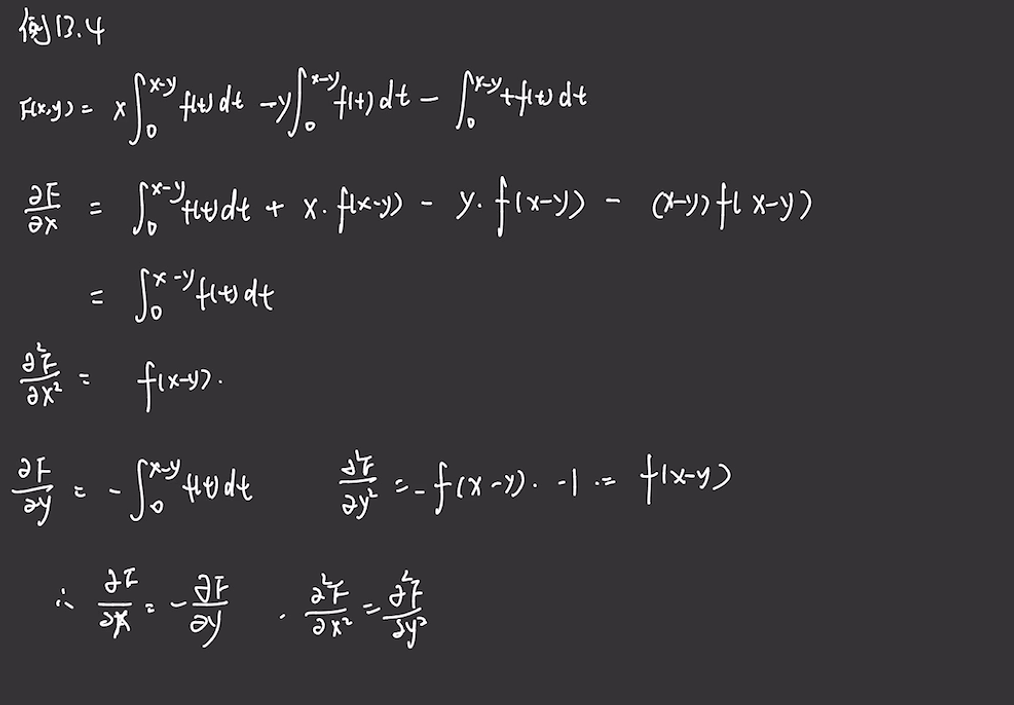 例13.4
F(x,y) = x∫₀^{x-y} f(t)dt - y∫₀^{x-y} f(t)dt - ∫₀^{x-y} tf(t)dt
∂F/∂x = ∫₀^{x-y} f(t)dt + x·f(x-y) - y·f(x-y) - (x-y)f(x-y)
= ∫₀^{x-y} f(t)dt
∂²F/∂x² = f(x-y).
∂F/∂y = -∫₀^{x-y} f(t)dt ∂²F/∂y² = -f(x-y)·-1·= f(x-y)
∴ ∂F/∂x = -∂F/∂y . ∂²F/∂x² = ∂²F/∂y²